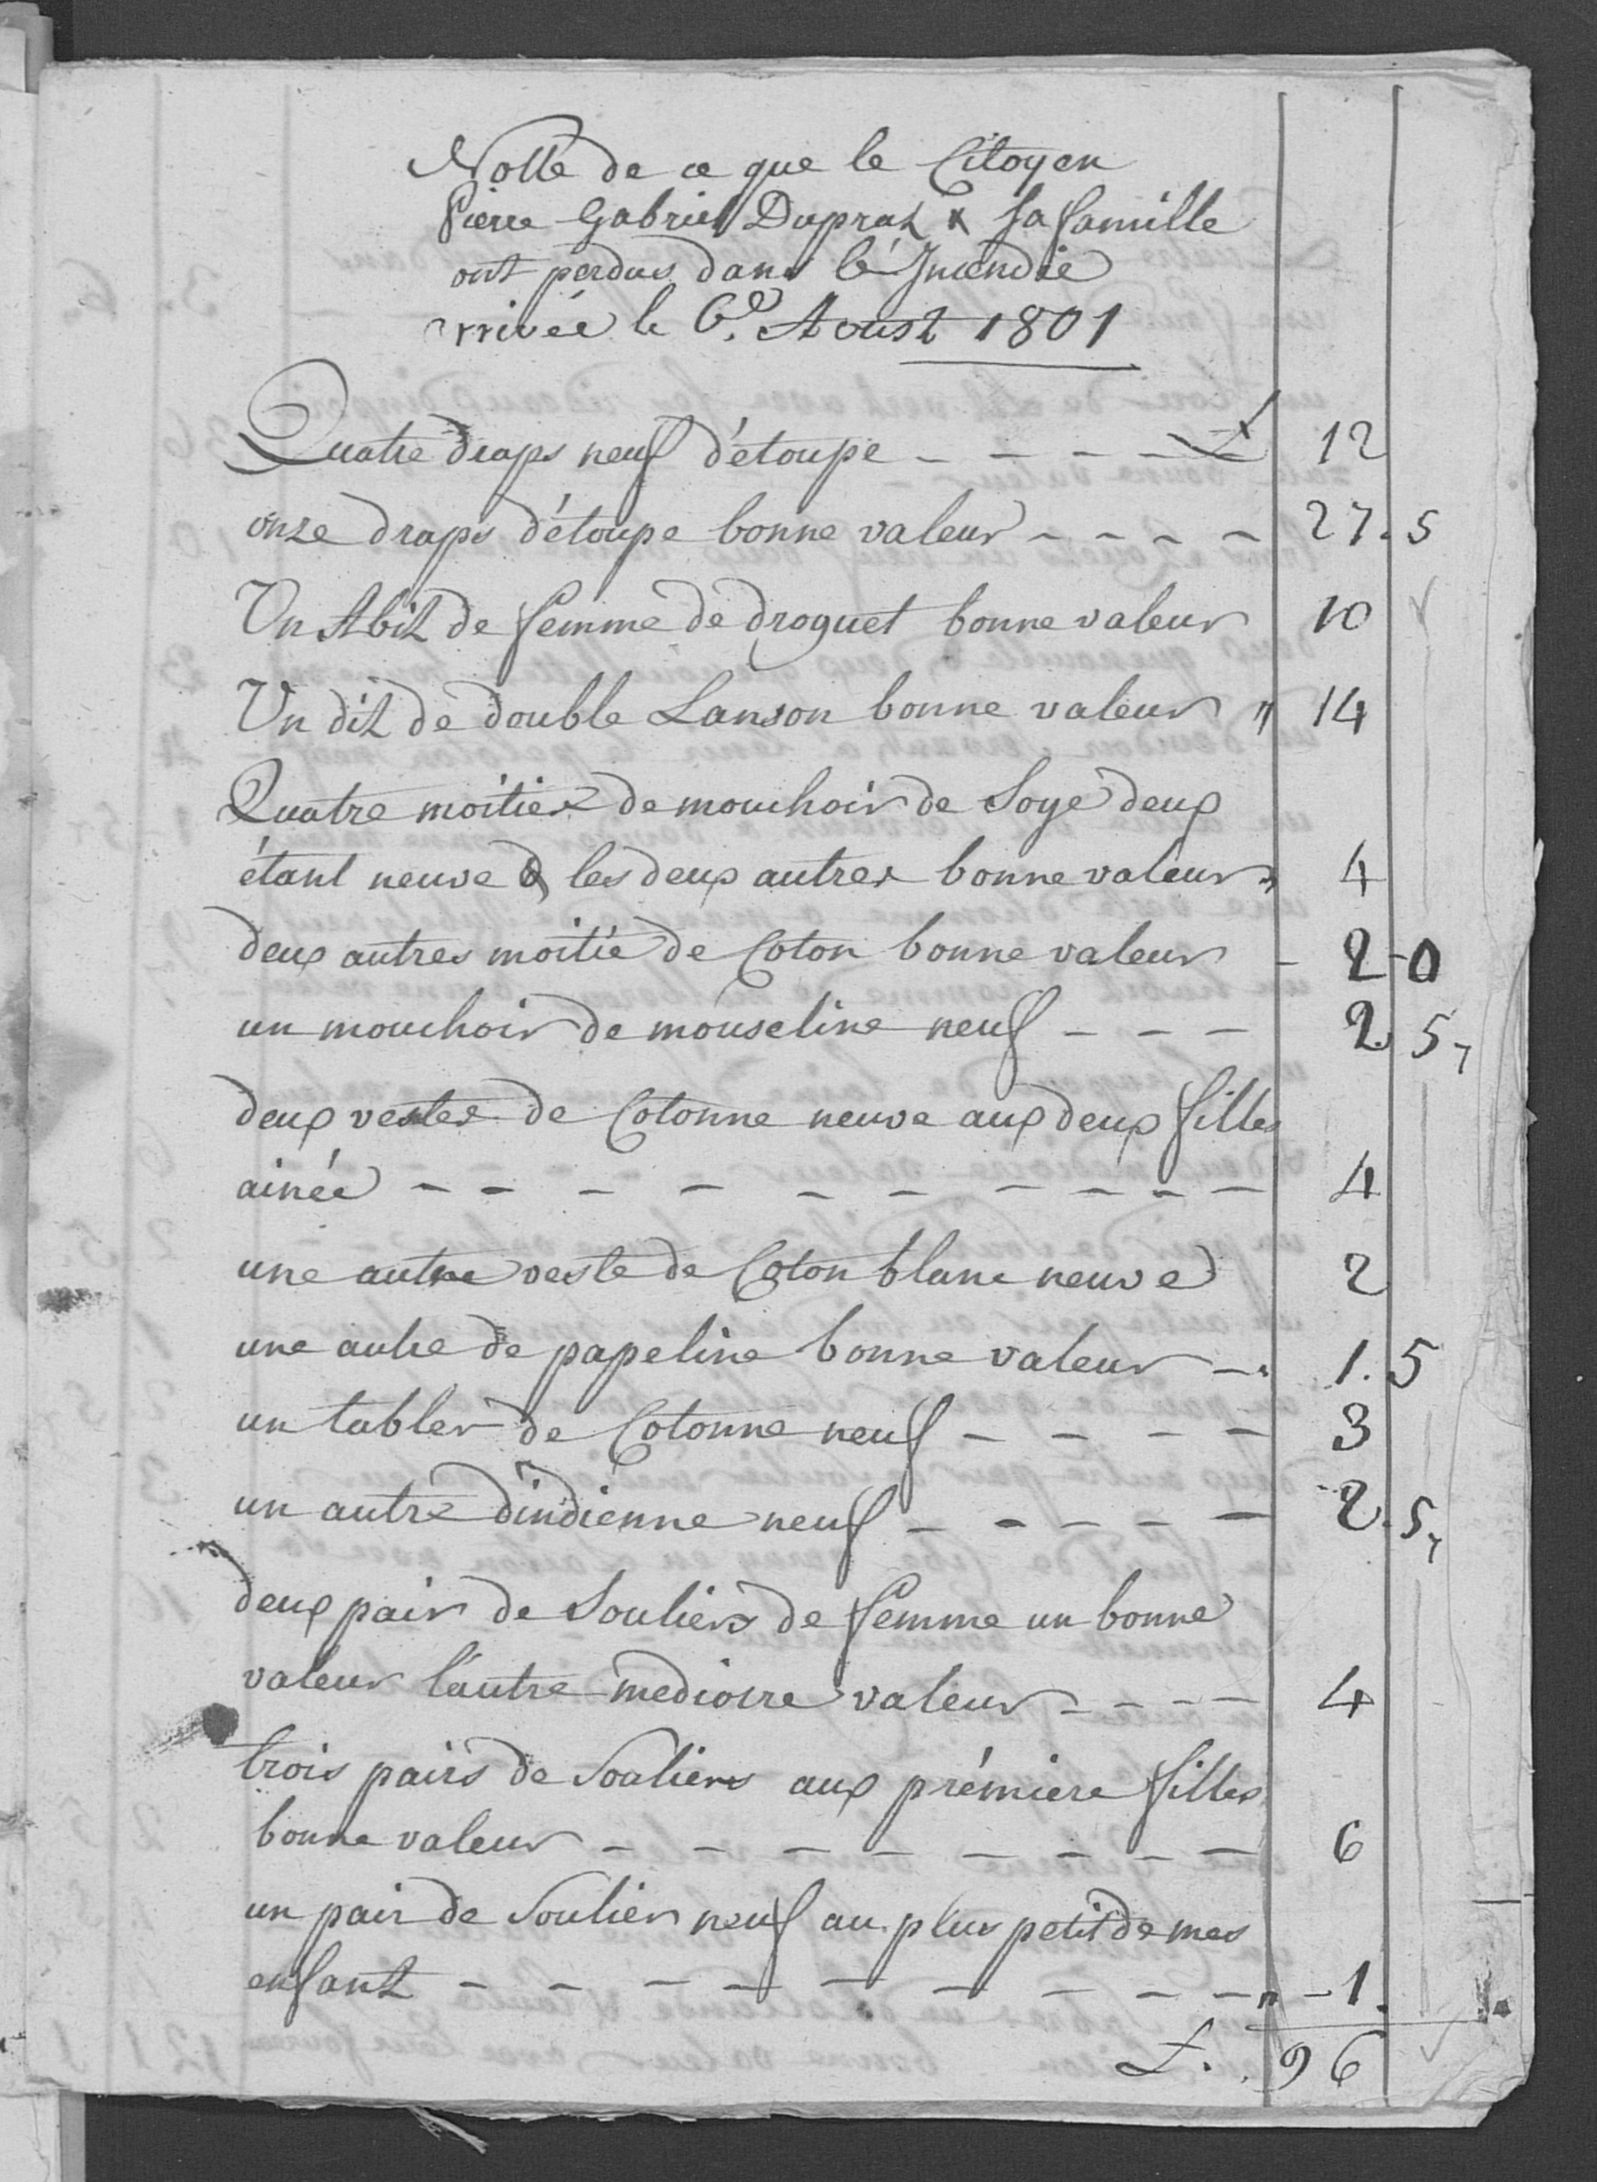 Notte de ce que le Citoyen
Pierre Gabriel Duprat & sa famille
ont perdus dans lé Jncendie
arrivée le 6e. Aoust 1801
Quatre draps neuf d'étoupe - - - - £ 12
onze draps d'étoupe bonne valeur - - - - 27. 5
Un Abit de femme de droguet bonne valeur 10
Un dit de double Lanson bonne valeur " 14
Quatre moitiez de mouchoir de Soye deux
étant neuve & les deux autres bonne valeur " 4
deux autres moitié de Coton bonne valeur - 2-0
un mouchoir de mouseline neuf - - - 2. 5
deux vestes de Cotonne neuve aux deux filles
ainée - - - - - - - - - - 4
une autre veste de Coton blanc neuve 2
une autre de papeline bonne valeur - 1. 5
un tablier de Cotonne neuf - - - - 3
un autre d'indienne neuf - - - - - 2. 5
deux pair de Souliers de femme un bonne
valeur l'autre mediocre valeur - - - - 4
trois pairs de Souliers aux prémiere filles
bonne valeur - - - - - - - - 6
un pair de Soulier neuf au plus petit de mes
enfant - - - - - - - - - " -1.
£. 96